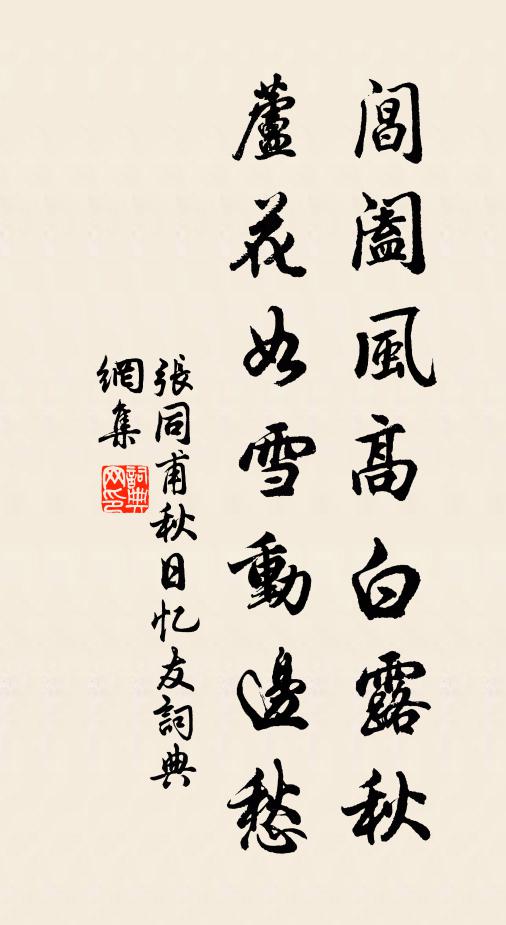 閶闔風高白露秋
蘆花如雪動邊愁
張同甫秋日忆友詞典
網集
詞典网印